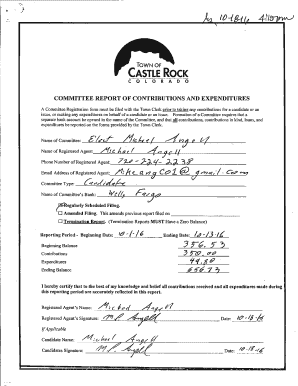 10-18-16 4:10pm
TOWN OF
CASTLE ROCK
COLORADO
COMMITTEE REPORT OF CONTRIBUTIONS AND EXPENDITURES
A Committee Registration form must be filed with the Town Clerk prior to taking any contributions for a candidate or an
issue, or making any expenditures on behalf of a candidate or an issue. Formation of a Committee requires that a
separate bank account be opened in the name of the Committee, and that all contributions, contributions in kind, loans, and
expenditures be reported on the forms provided by the Town Clerk.
Name of Committee: Elect Michael Angell
Name of Registered Agent: Michael Angell
Phone Number of Registered Agent: 720-224-2238
Email Address of Registered Agent: Mikeang01@gmail.com
Committee Type Candidate
Name of Committee's Bank: Wells Fargo
Regularly Scheduled Filing.
Amended Filing. This amends previous report filed on
Termination Report. (Termination Reports MUST Have a Zero Balance)
Reporting Period - Beginning Date: 10-1-16 Ending Date: 10-13-16
Beginning Balance 356.53
Contributions 350.00
Expenditures
Ending Balance
I hereby certify that to the best of my knowledge and belief all contributions received and all expenditures made during
this reporting period are accurately reflected in this report.
Registered Agent's Name: Michael Angell
Registered Agent's Signature: Date: 10-18-16
If Applicable
Candidate Name: Michael Angell
Candidates Signature: Date: 10-18-16